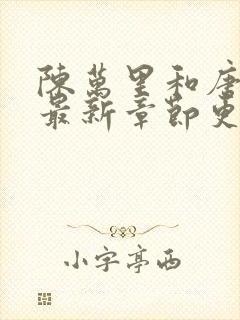 陳萬里和唐
最新章節更
小字亭西